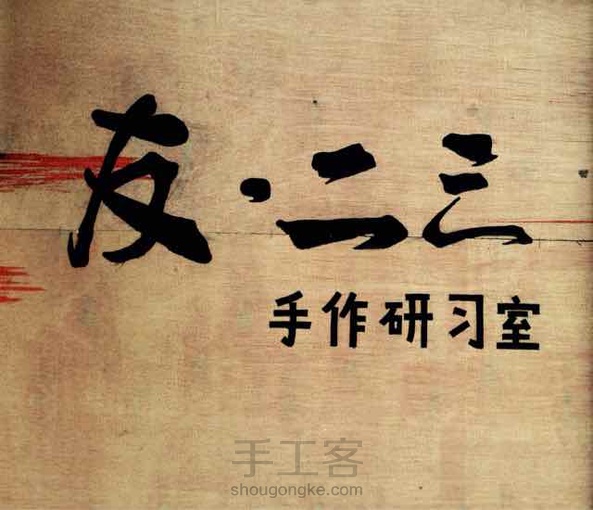 友·二三
手作研习室
手工客
shougongke.com